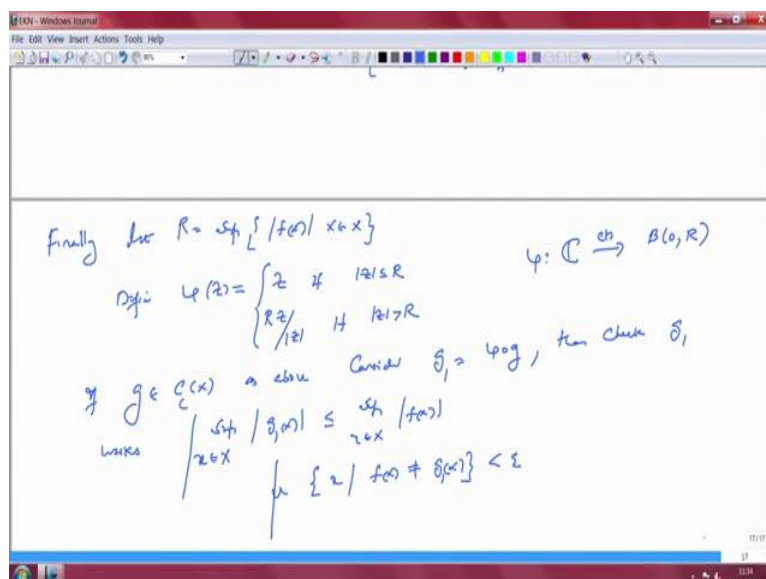 EKN - Windows Journal
File Edit View Insert Actions Tools Help
Finally let R = sup { |f(x)| x∈X }
φ: ℂ cts→ B(0,R)
Define φ(z) = { z if |z| ≤ R
Rz/|z| if |z| > R
If g ∈ C_c(X) as above Consider g₁ = φ∘g, then check g₁
works sup x∈X |g₁(x)| ≤ sup x∈X |f(x)|
μ { x | f(x) ≠ g₁(x) } < ε
17/17
17
11:34